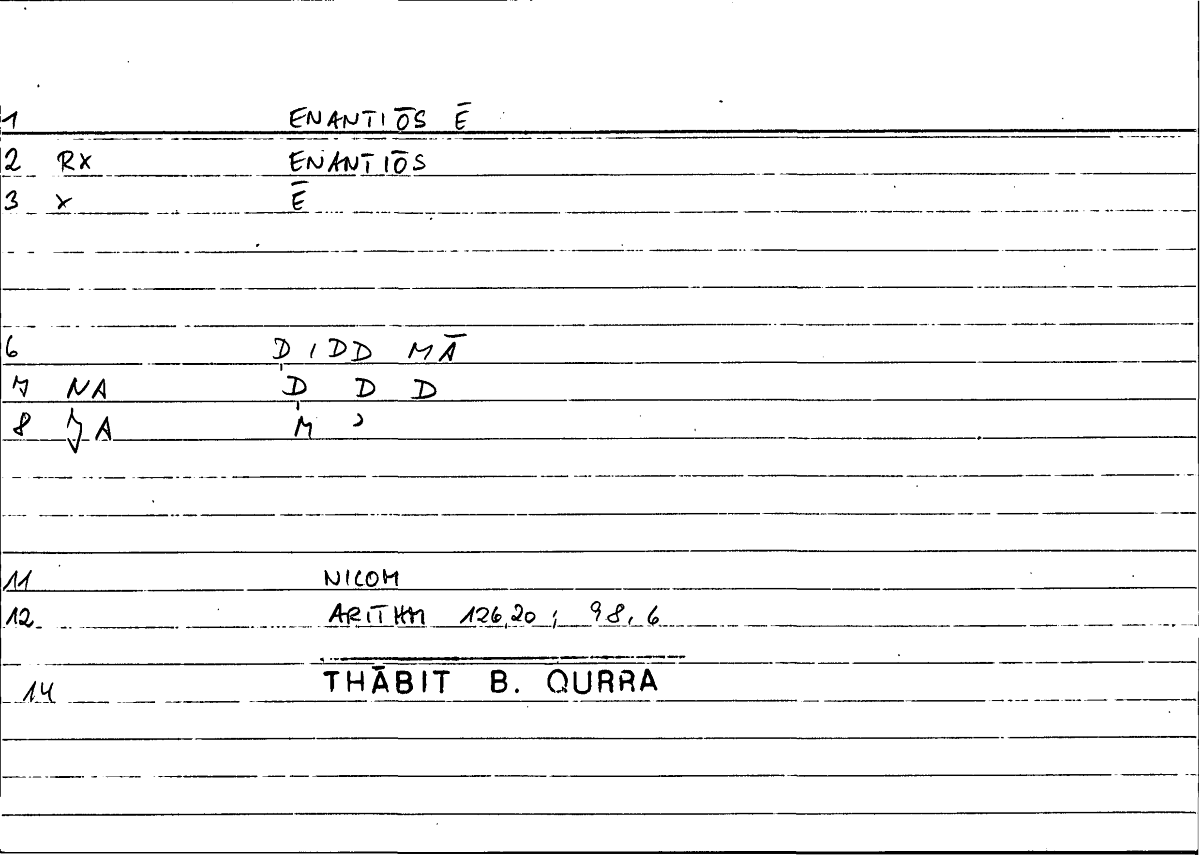 1 ENANTIŌS Ē
2 RX ENANTIŌS
3 X Ē
6 ḌIDD MĀ
7 NA Ḍ D D
8 A M ʾ
11 NICOM
12 ARITHM 126,20 ; 98,6
14 THĀBIT B. QURRA